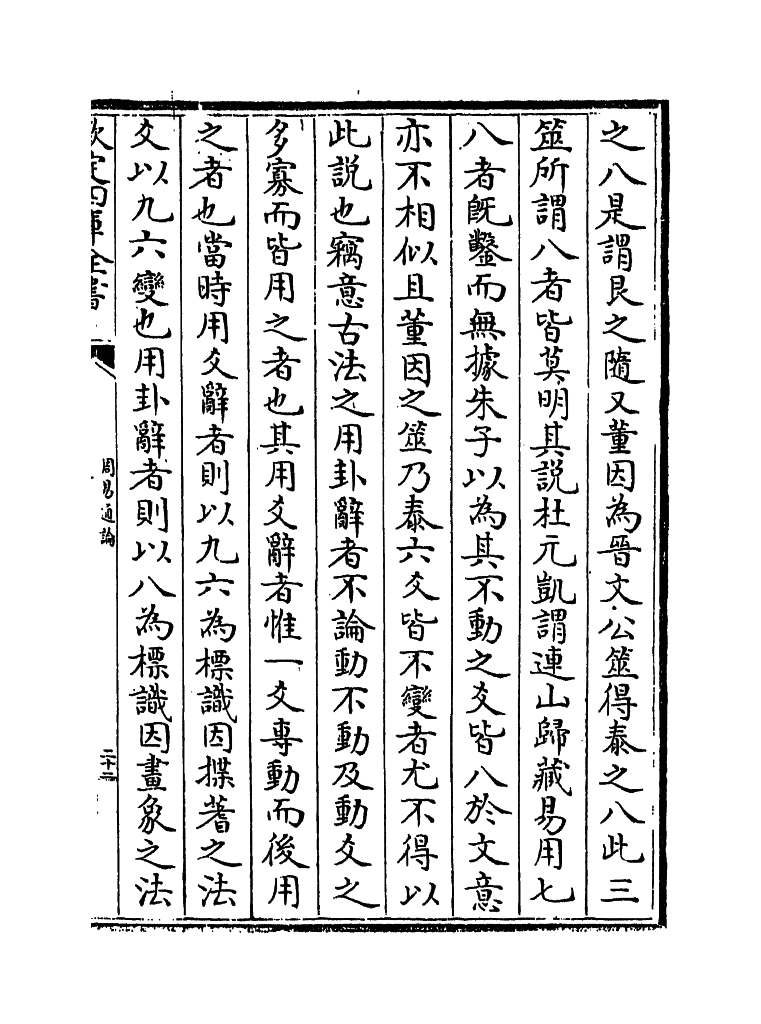 之八是謂艮之隨又董因為晉文公筮得泰之八此三
筮所謂八者皆莫明其説杜元凱謂連山歸藏易用七
八者旣鑿而無據朱子以為其不動之爻皆八於文意
亦不相似且董因之筮乃泰六爻皆不變者尤不得以
此説也竊意古法之用卦辭者不論動不動及動爻之
多寡而皆用之者也其用爻辭者惟一爻專動而後用
之者也當時用爻辭者則以九六為標識因揲蓍之法
爻以九六變也用卦辭者則以八為標識因畫象之法
欽定四庫全書
周易通論
二十二